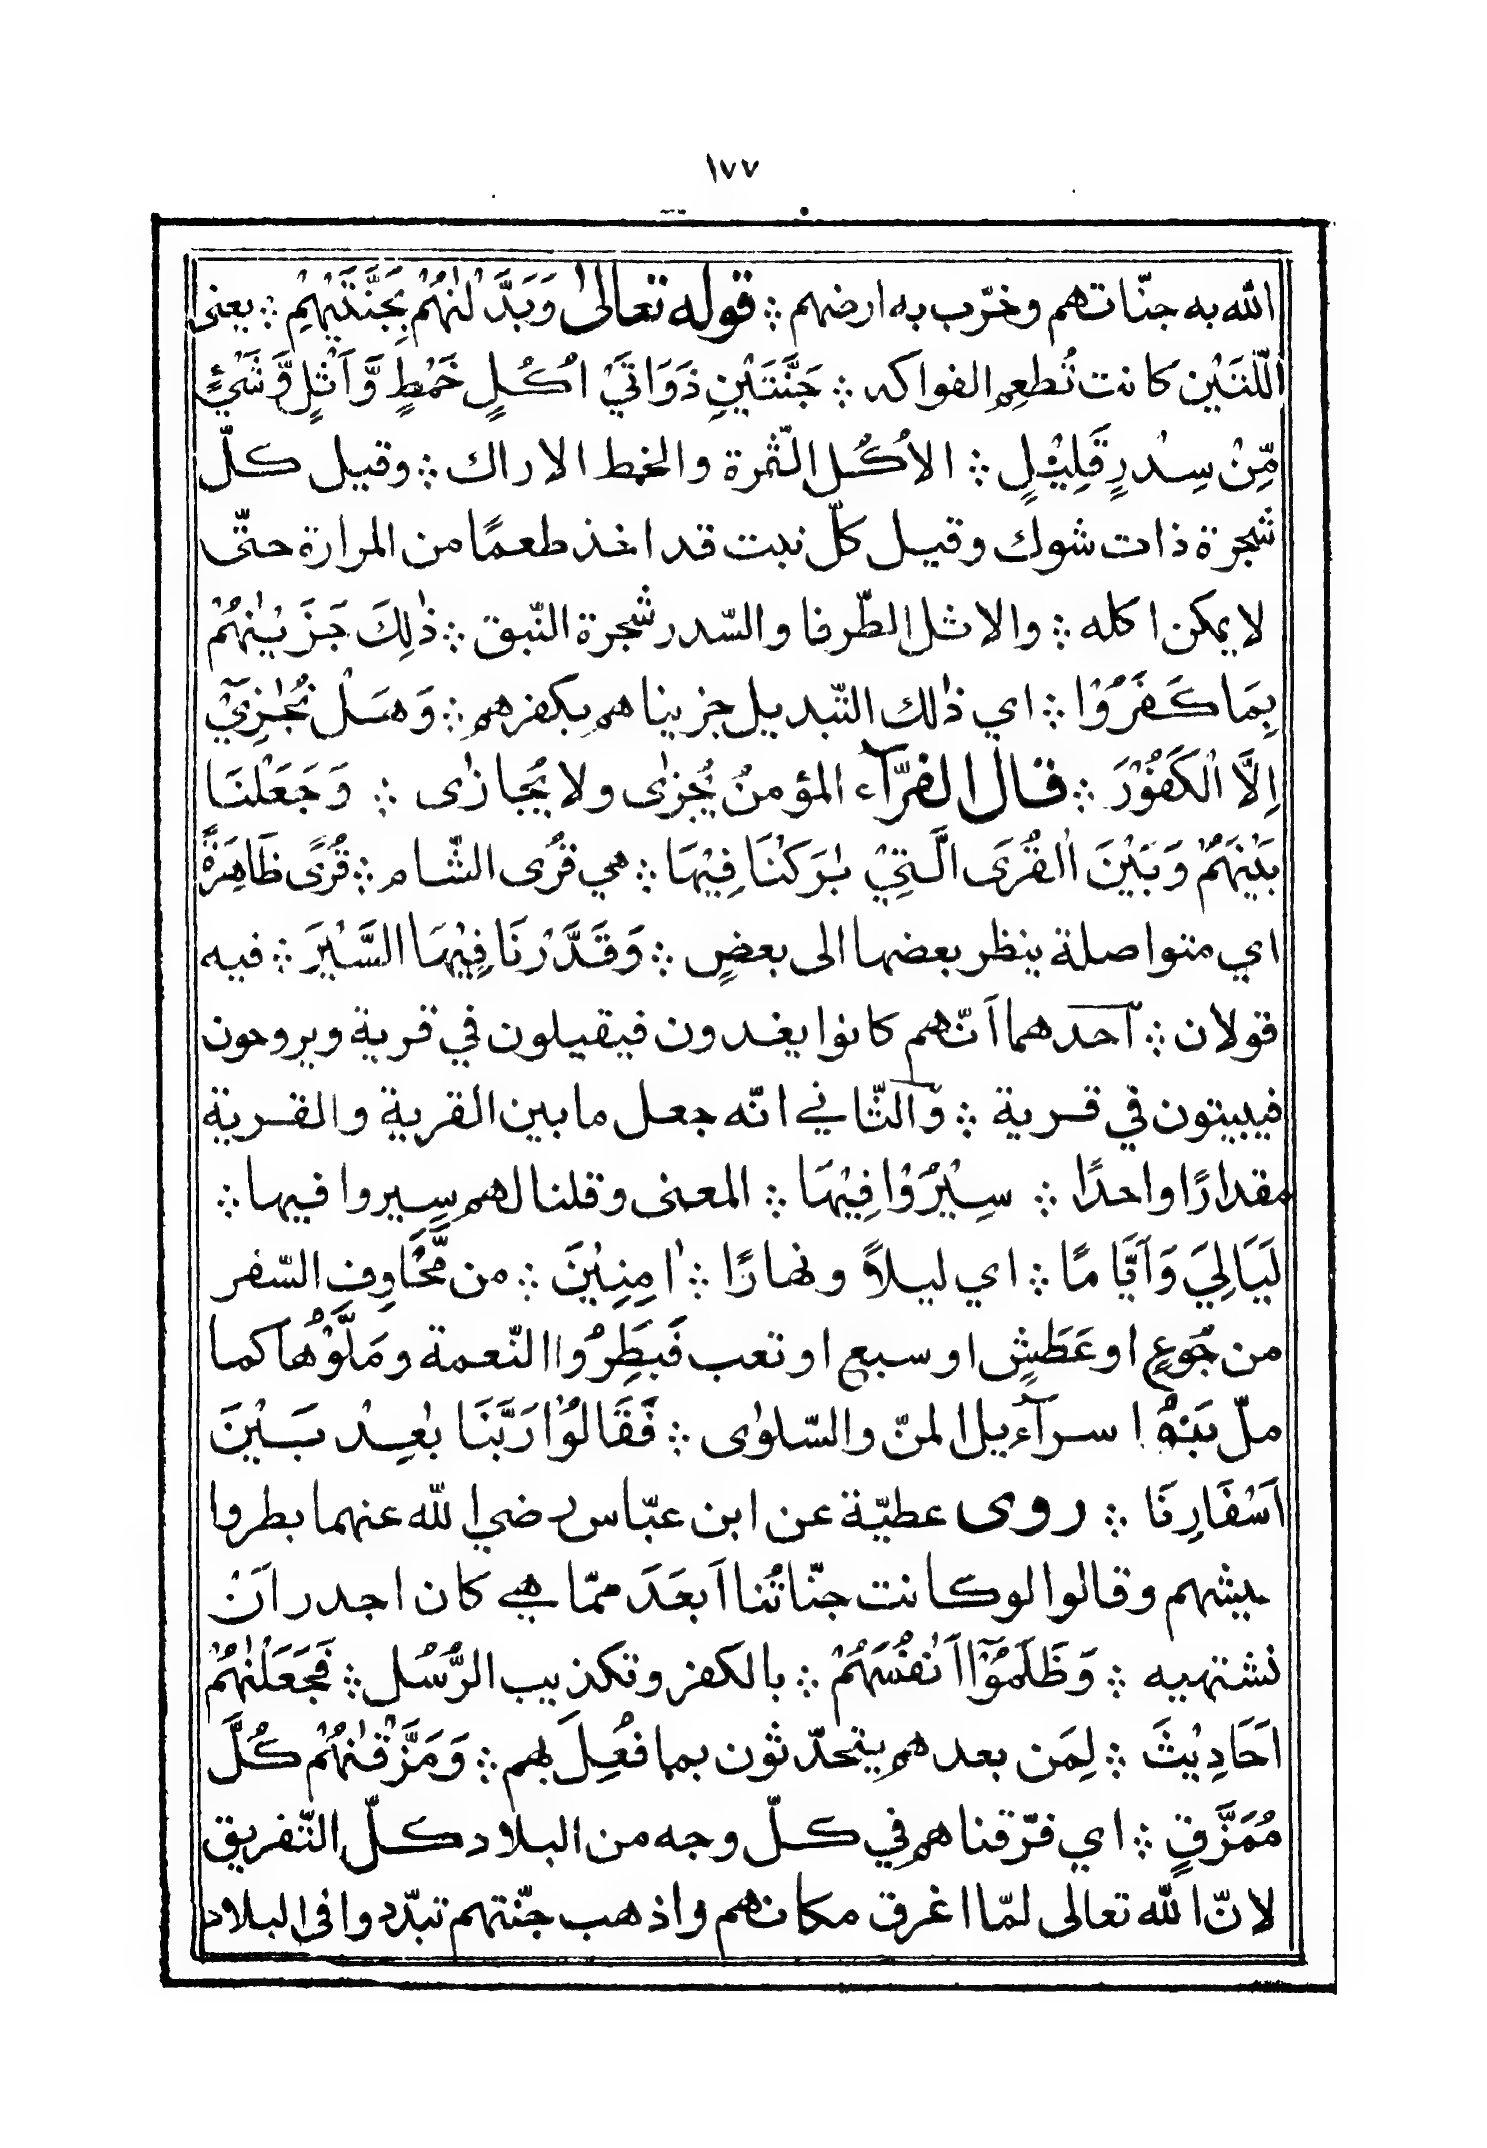 ١٧٧
الله به جنّاتهم وخرّب به ارضهم ؞ قوله تعالىٰ وَبَدَّلْنٰهُمْ بِجَنَّتَيْهِمْ ؞ يعنى
اللّتَيْن كانت تُطعِم الفواكه ؞ جَنَّتَيْنِ ذَوَاتَيْ اُكُلٍ خَمْطٍ وَّاَثْلٍ وَّشَيْءٍ
مِّنْ سِدْرٍ قَلِيْلٍ ؞ الاُكُل الثّمرة والخمط الاراك ؞ وقيل كلّ
شجرة ذات شوك وقيل كلّ نبت قد اخذ طعمًا من المرارة حتّى
لا يمكن اكله ؞ والاثل الطّرفا والسّدر شجرة النّبق ؞ ذٰلِكَ جَزَيْنٰهُمْ
بِمَا كَفَرُوْا ؞ اي ذٰلك التّبديل جزيناهم بكفرهم ؞ وَهَلْ نُجٰزِيْٓ
اِلَّا الْكَفُوْرَ ؞ قال الفرّآء المؤمنُ يُجزٰى ولا يُجازٰى ؞ وَجَعَلْنَا
بَيْنَهُمْ وَبَيْنَ الْقُرَى الَّتِيْ بٰرَكْنَا فِيْهَا ؞ هي قُرى الشّام ؞ قُرًى ظَاهِرَةً
اي متواصلة ينظر بعضها الى بعضٍ ؞ وَقَدَّرْنَا فِيْهَا السَّيْرَ ؞ فيه
قولان ؞ احدهما اَنّهم كانوا يغدون فيقيلون في قرية ويروحون
فيبيتون في قرية ؞ والثّاني انّه جعل ما بين القرية والقرية
مقدارًا واحدًا ؞ سِيْرُوْا فِيْهَا ؞ المعنى وقلنا لهم سِيروا فيها ؞
لَيَالِيَ وَاَيَّامًا ؞ اي ليلاً ونهارًا ؞ اٰمِنِيْنَ ؞ من مَّخَاوِف السّفر
من جُوعٍ او عَطَشٍ او سبع او تعب فَبَطِرُوا النّعمة ومَلَّوْها كما
ملّ بَنُو اسرآءيل المنّ والسّلوٰى ؞ فَقَالُوْا رَبَّنَا بٰعِدْ بَيْنَ
اَسْفَارِنَا ؞ روى عطيّة عن ابن عبّاس رضي الله عنهما بطروا
عيشهم وقالوا لو كانت جنّاتُنا اَبعَدَ ممّا هي كان اجدر اَنْ
نشتهيه ؞ وَظَلَمُوْٓا اَنْفُسَهُمْ ؞ بالكفر وتكذيب الرُّسُل ؞ فَجَعَلْنٰهُمْ
اَحَادِيْثَ ؞ لِمَن بعدهم يتحدّثون بما فُعِلَ بهم ؞ وَمَزَّقْنٰهُمْ كُلَّ
مُمَزَّقٍ ؞ اي فرّقناهم في كلّ وجه من البلاد كلّ التّفريق
لانّ الله تعالى لمّا اغرق مكانهم واذهب جنّتهم تبدّدوا فى البلاد